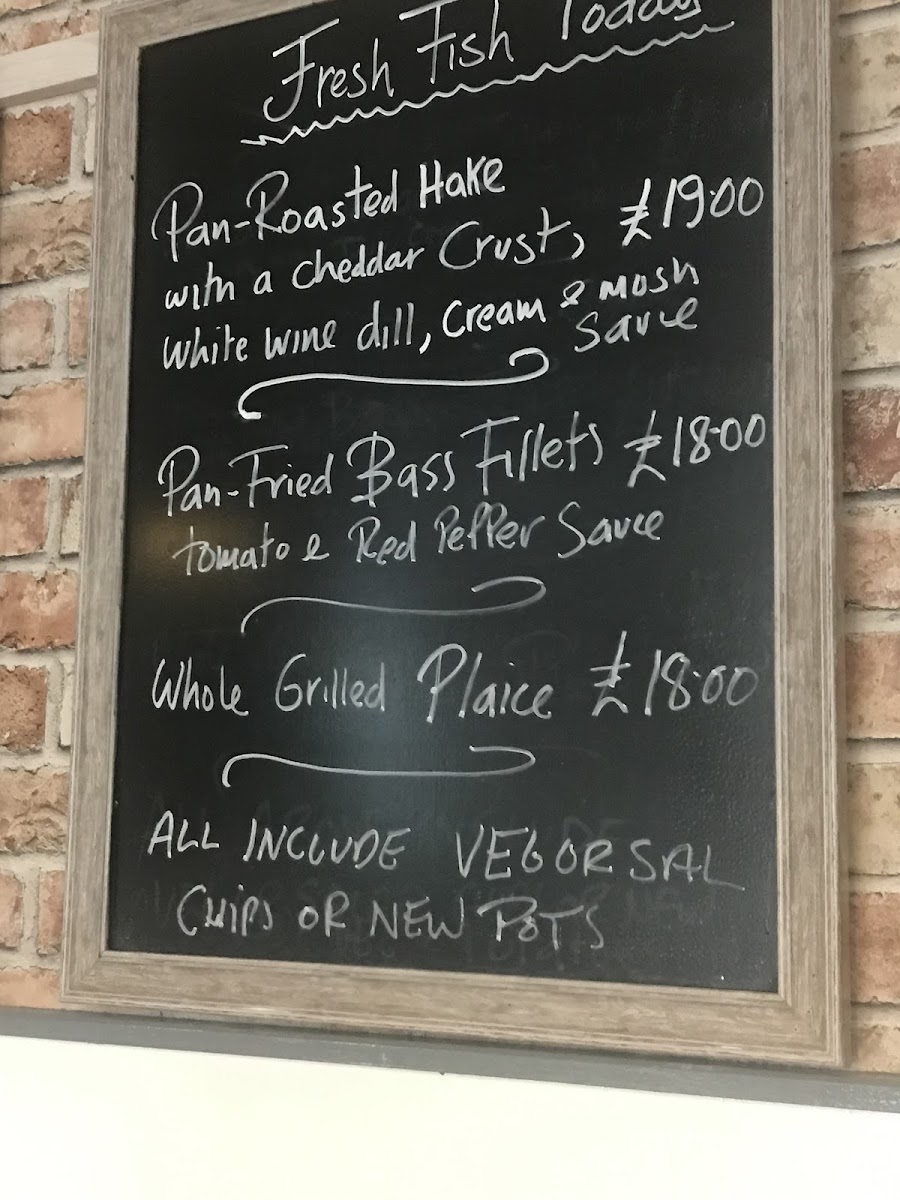 Fresh Fish Today
Pan-Roasted Hake
with a Cheddar Crust, £19.00
White wine dill, Cream & mush
Sauce
Pan-Fried Bass Fillets £18.00
tomato & Red Pepper Sauce
Whole Grilled Plaice £18.00
ALL INCLUDE VEG OR SAL
CHIPS OR NEW POTS